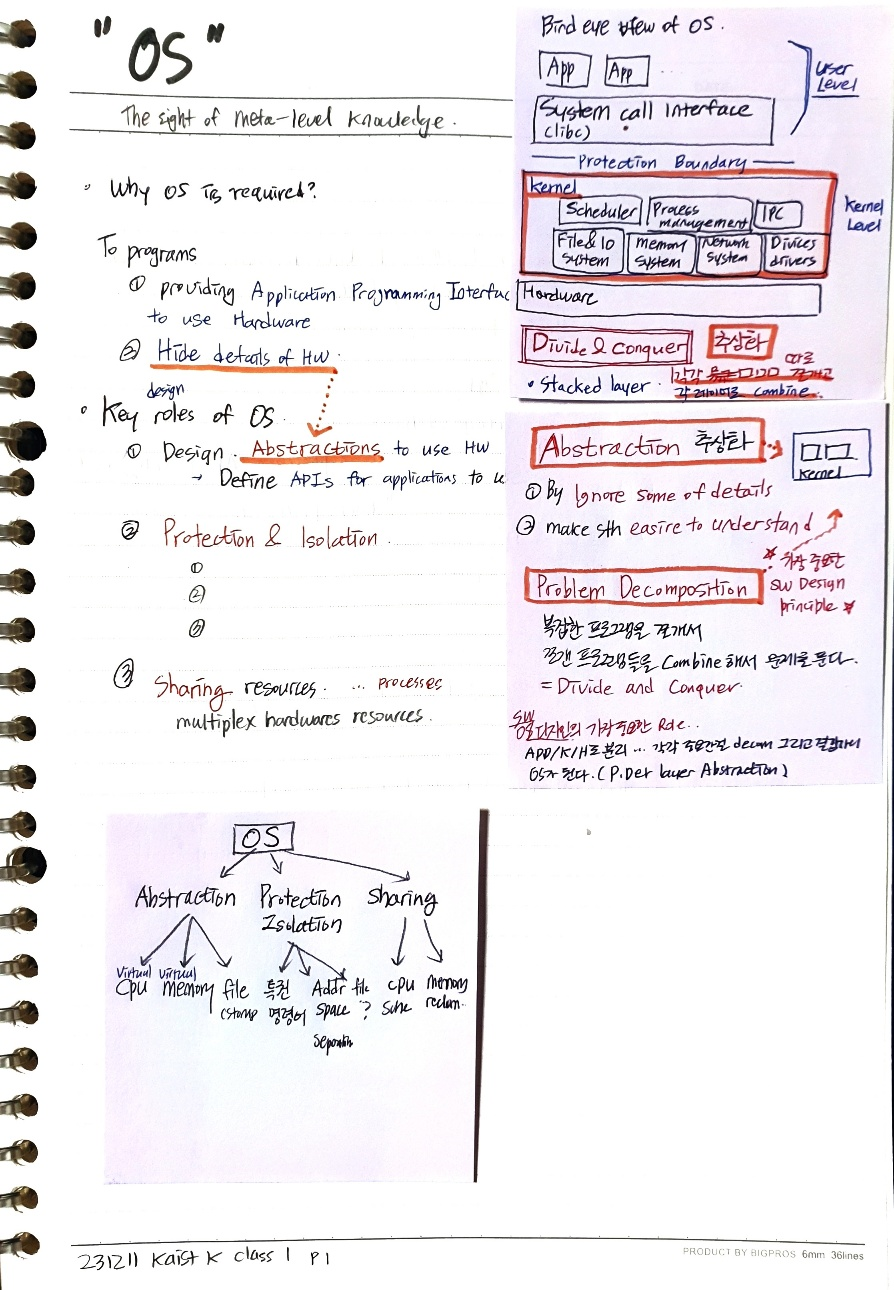 "OS"
The sight of meta-level knowledge.
• Why OS is required?
To programs
① providing Application Programming Interfac
to use Hardware
② Hide details of HW.
design
• Key roles of OS.
① Design. Abstractions to use HW
→ Define APIs for applications to u
② Protection & Isolation
①
②
③
③ Sharing resources. ... processes
multiplex hardwares resources.
Bird eye view of OS.
App App ...
User
Level
System call Interface
(libc)
Protection Boundary
Kernel
Kernel
Level
Scheduler Process management IPC
File & IO system memory system Network system Divices drivers
Hardware
Divide & Conquer 추상화
• Stacked layer. 각각 따로
각 레이어로 combine.
Abstraction 추상화
Kernel
① By Ignore some of details
② make sth easire to understand
★ 가장 중요한
SW Design
principle ★
Problem Decomposition
복잡한 프로그램을 쪼개서
쪼갠 프로그램들을 Combine 해서 문제를 푼다.
= Divide and Conquer.
SW
디자인의 가장 중요한 Role..
APP/K/H로 분리 ... 각각 그리고
OS가 된다. (P.Def layer Abstraction)
OS
Abstraction Protection Isolation Sharing
Virtual CPU Virtual memory file 특권 명령어 Addr space file ? CPU Sche memory reclam..
231211 Kaist K class 1 P1
PRODUCT BY BIGPROS 6mm 36lines